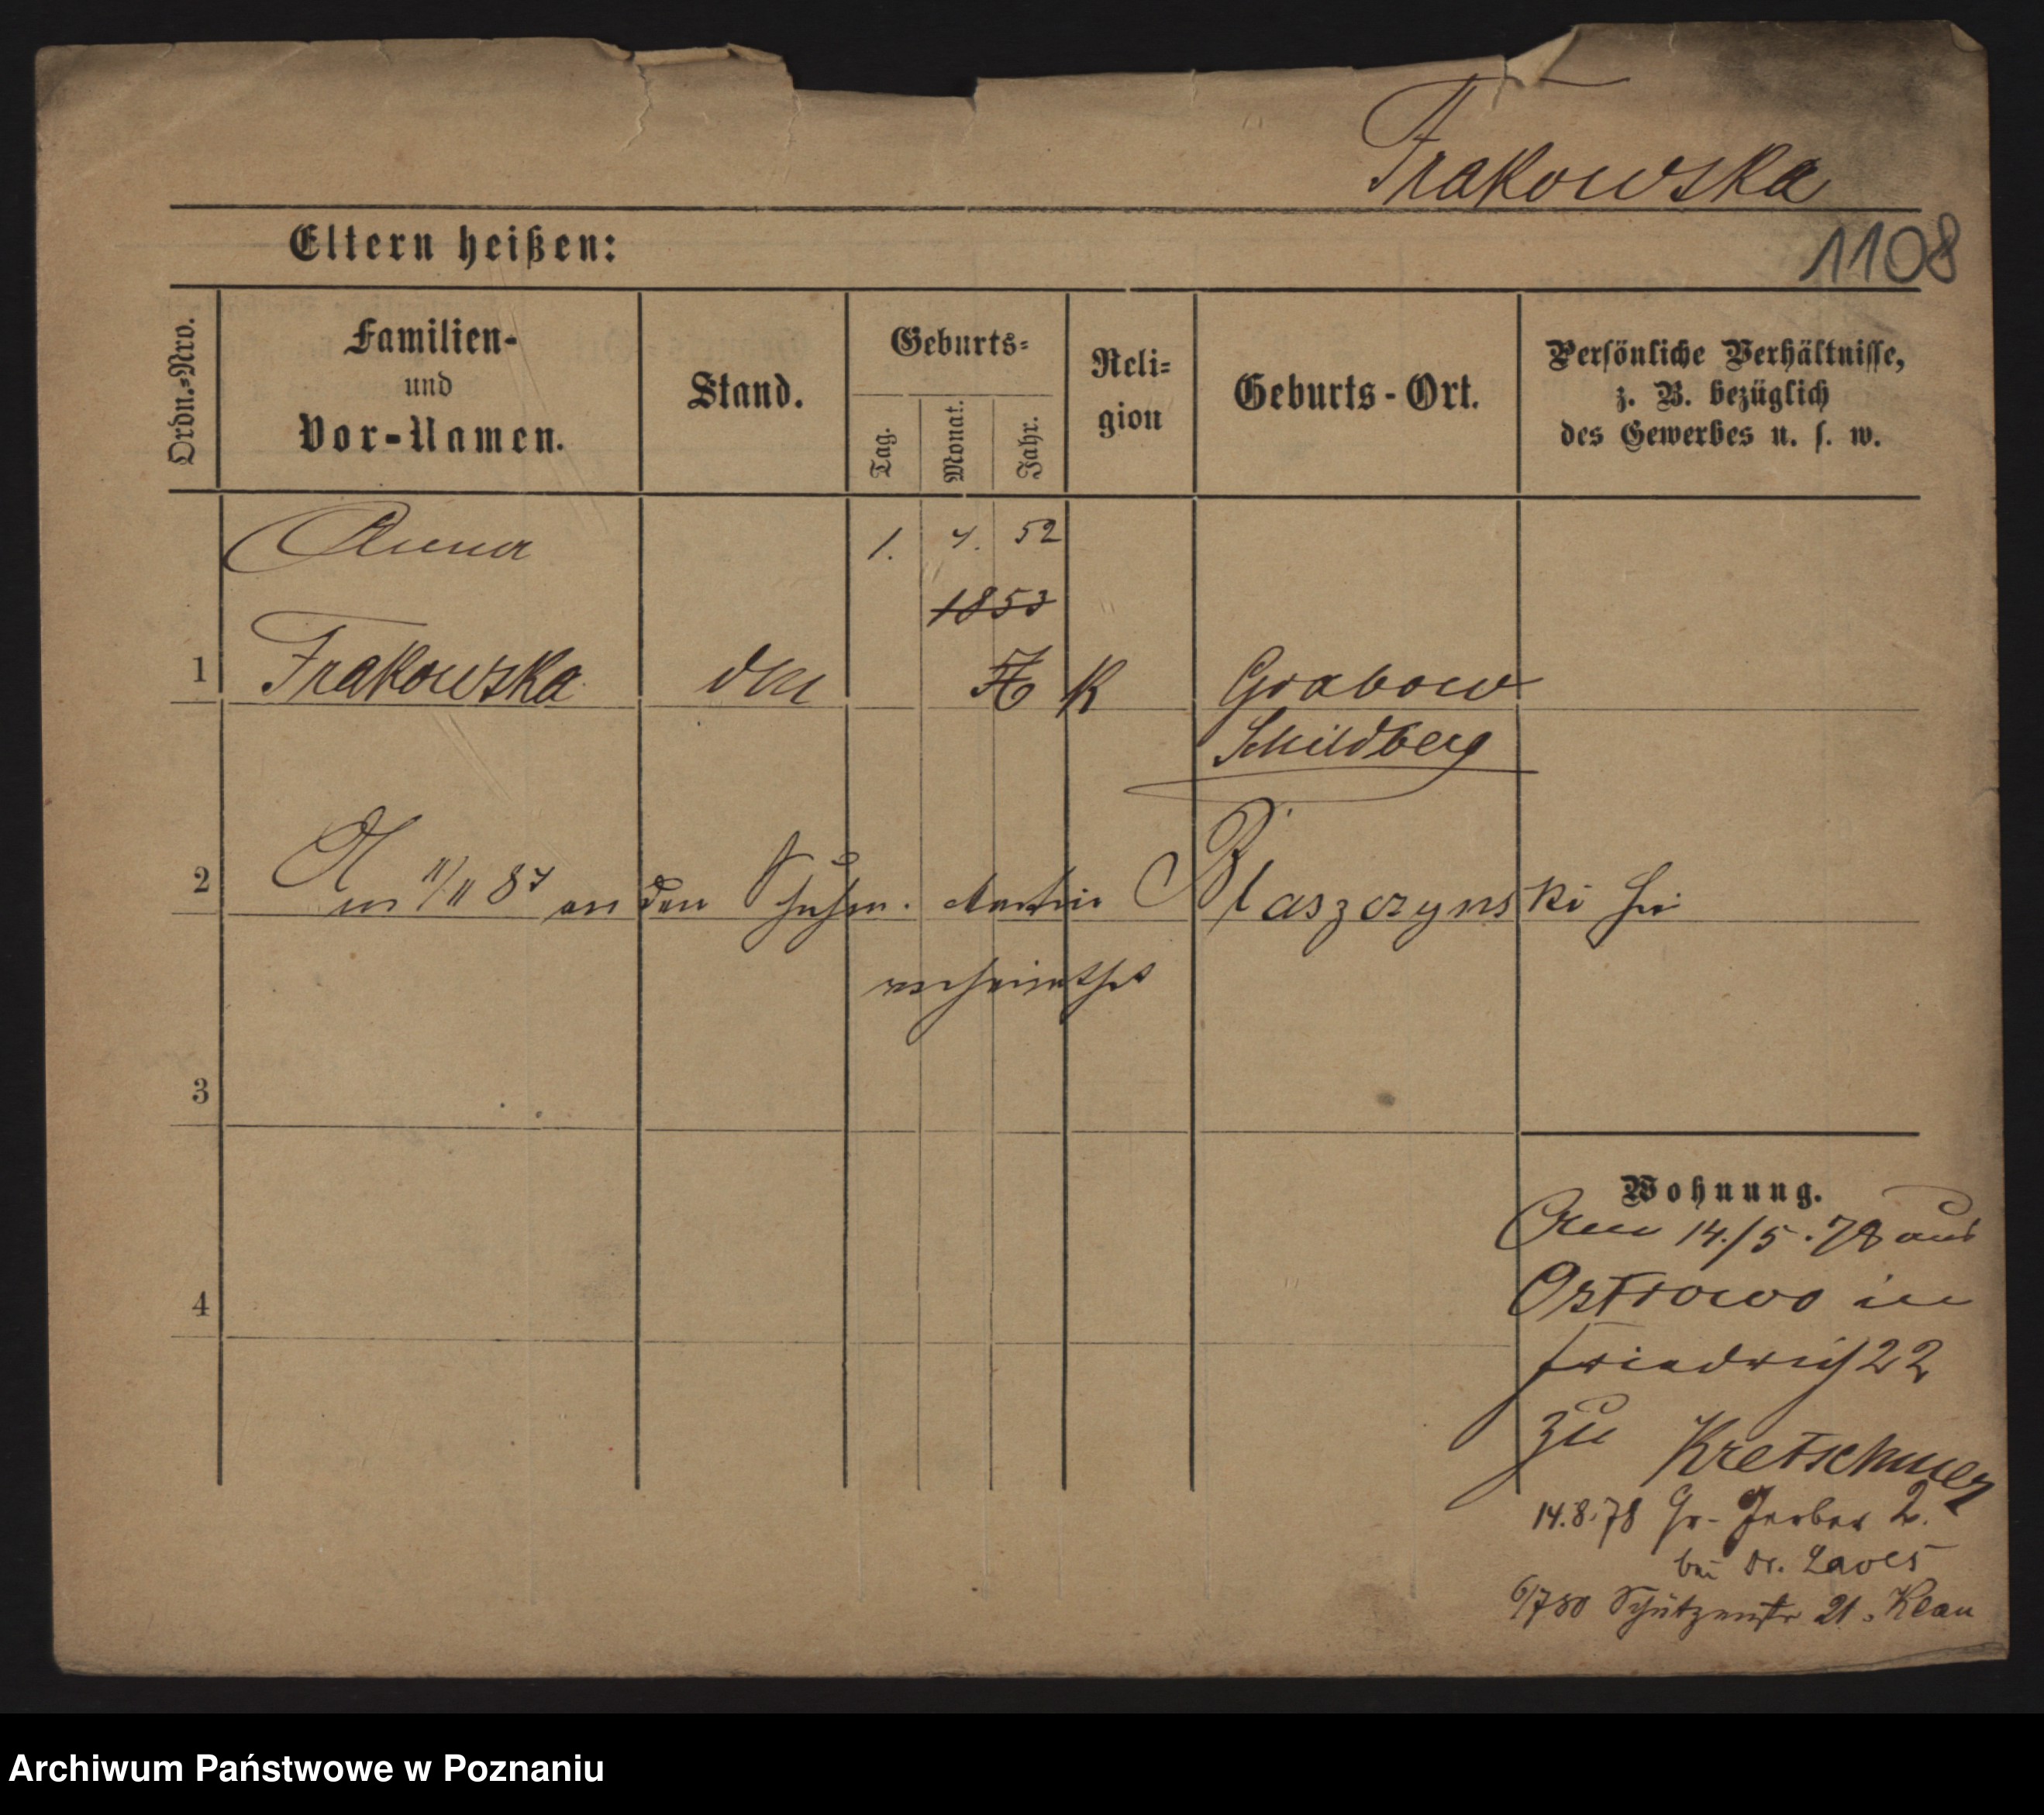 Frakowska
Eltern heißen:
1108
Ordn.=Nro.
Familien-
und
Vor-Namen.
Stand.
Geburts=
Tag.
Monat.
Jahr.
Reli=
gion
Geburts-Ort.
Persönliche Verhältnisse,
z. B. bezüglich
des Gewerbes u. s. w.
Anna
1. 4. 52
1853
1 Frakowska K Grabow
Schildberg
2 Am 11/11 84 an den Martin Blaszczynski hier
verheirathet
3
Wohnung.
Am 14./5.78 aus
4
Ostrowo in
Friedrich 22
zu Kretschmer
14.8.78 Gr. Gerber 2.
bei Dr. Laves
6/7 80 Schützenstr 21.